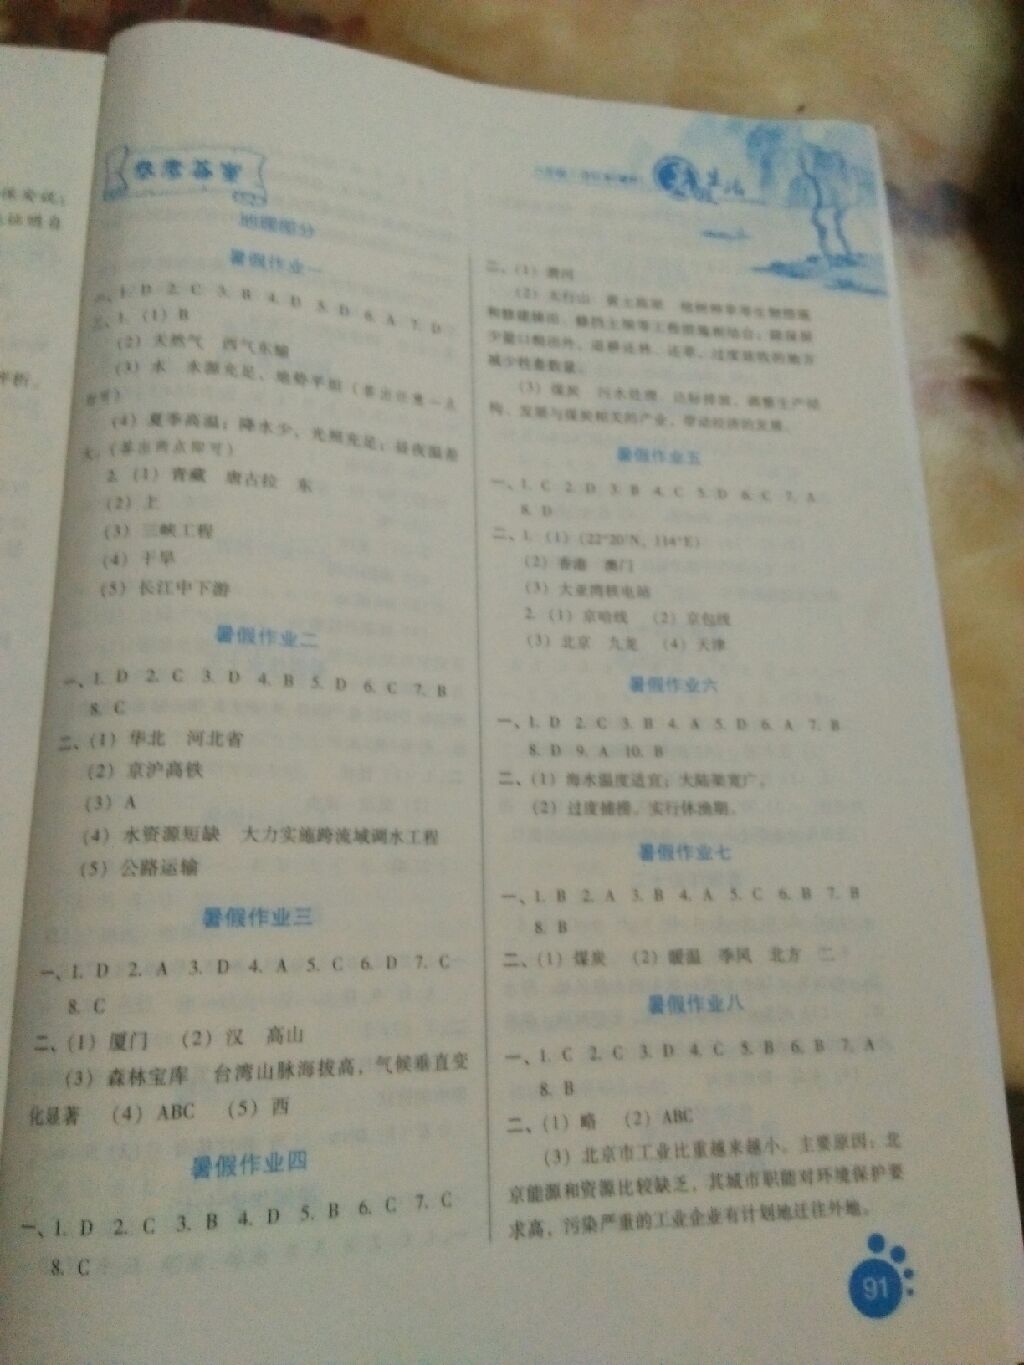 参考答案
地理部分
暑假作业一
一、1. D 2. C 3. B 4. D 5. D 6. A 7. D
二、1. (1) B
(2) 天然气 西气东输
(3) 水 水源充足、地势平坦（答出任意一点
即可）
(4) 夏季高温；降水少，光照充足；昼夜温差
大。（答出两点即可）
2. (1) 青藏 唐古拉 东
(2) 上
(3) 三峡工程
(4) 干旱
(5) 长江中下游
暑假作业二
一、1. D 2. C 3. D 4. B 5. D 6. C 7. B
8. C
二、(1) 华北 河北省
(2) 京沪高铁
(3) A
(4) 水资源短缺 大力实施跨流域调水工程
(5) 公路运输
暑假作业三
一、1. D 2. A 3. D 4. A 5. C 6. D 7. C
8. C
二、(1) 厦门 (2) 汉 高山
(3) 森林宝库 台湾山脉海拔高，气候垂直变
化显著 (4) ABC (5) 西
暑假作业四
一、1. D 2. C 3. B 4. D 5. B 6. C 7. C
8. C
二、(1)
(2) 太行山 黄土高原
减少牲畜数量。
(3) 煤炭 污水处理 达标排放，调整生产结
构，发展与煤炭相关的产业，带动经济的发展。
暑假作业五
一、1. C 2. D 3. B 4. C 5. D 6. C 7. A
8. D
二、1. (1)（22°20′N，114°E）
(2) 香港 澳门
(3) 大亚湾核电站
2. (1) 京哈线 (2) 京包线
(3) 北京 九龙 (4) 天津
暑假作业六
一、1. D 2. C 3. B 4. A 5. D 6. A 7. B
8. D 9. A 10. B
二、(1) 海水温度适宜；大陆架宽广。
(2) 过度捕捞。实行休渔期。
暑假作业七
一、1. B 2. A 3. B 4. A 5. C 6. B 7. B
8. B
二、(1) 煤炭 (2) 暖温 季风 北方 二
暑假作业八
一、1. C 2. C 3. D 4. C 5. B 6. B 7. A
8. B
二、(1) 略 (2) ABC
(3) 北京市工业比重越来越小。主要原因：北
京能源和资源比较缺乏，其城市职能对环境保护要
求高，污染严重的工业企业有计划地迁往外地。
91